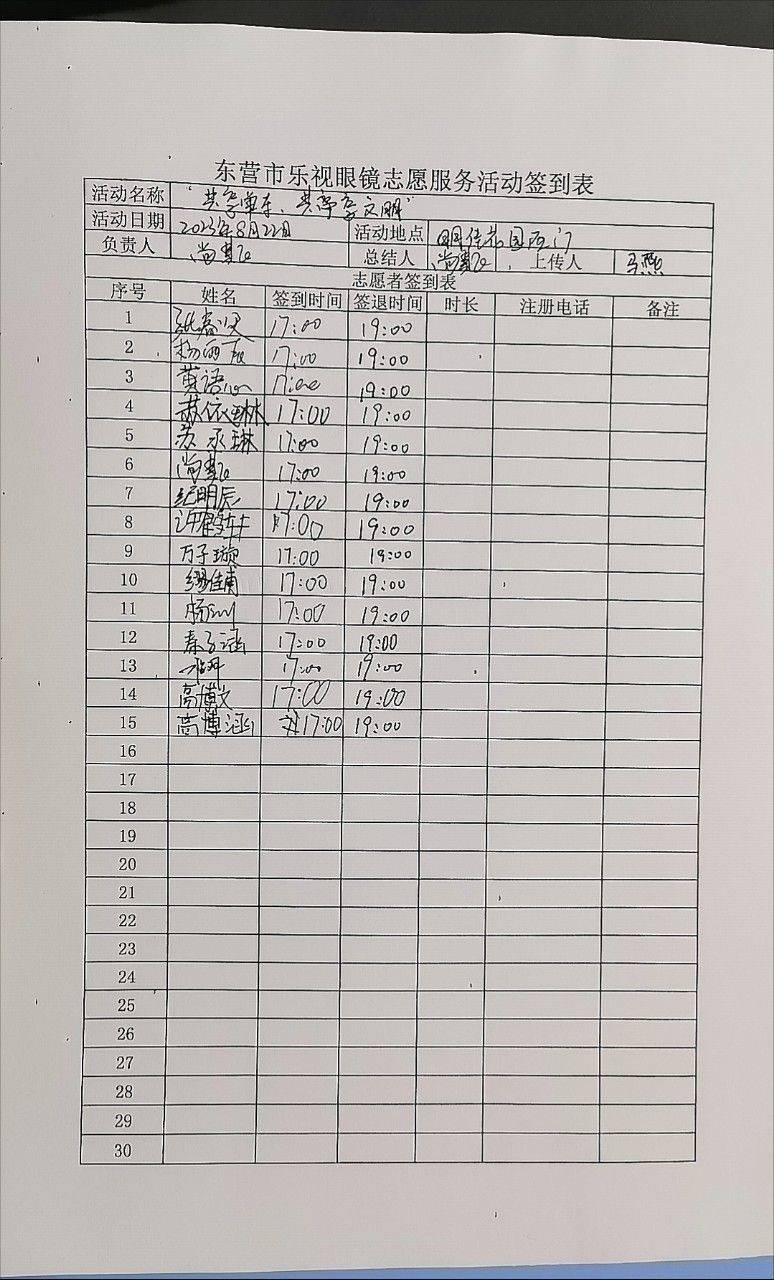 东营市乐视眼镜志愿服务活动签到表
活动名称 "共享单车、共享文明"
活动日期 2023年8月22日 活动地点 明佳花园西门
负责人 尚 总结人 尚 上传人 马燕
志愿者签到表
序号 姓名 签到时间 签退时间 时长 注册电话 备注
1 张春 17:00 19:00
2 杨雨 17:00 19:00
3 黄语 17:00 19:00
4 赫依琳 17:00 19:00
5 苏承琳 17:00 19:00
6 尚 17:00 19:00
7 纪明辰 17:00 19:00
8 许 轩 17:00 19:00
9 万子璇 17:00 19:00
10 佳 17:00 19:00
11 杨 17:00 19:00
12 秦子涵 17:00 19:00
13 17:00 19:00
14 高博文 17:00 19:00
15 高博涵 17:00 19:00
16
17
18
19
20
21
22
23
24
25
26
27
28
29
30